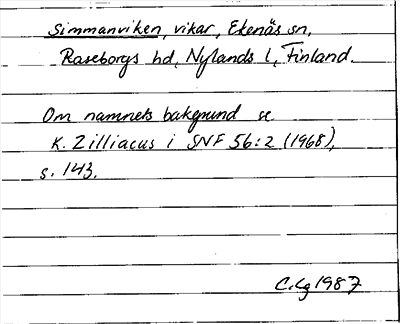 Simmanviken, vikar, Ekenäs sn,
Raseborgs hd, Nylands l, Finland.
Om namnets bakgrund se
K. Zilliacus i SNF 56:2 (1968),
s. 143.
C.Lg 1987